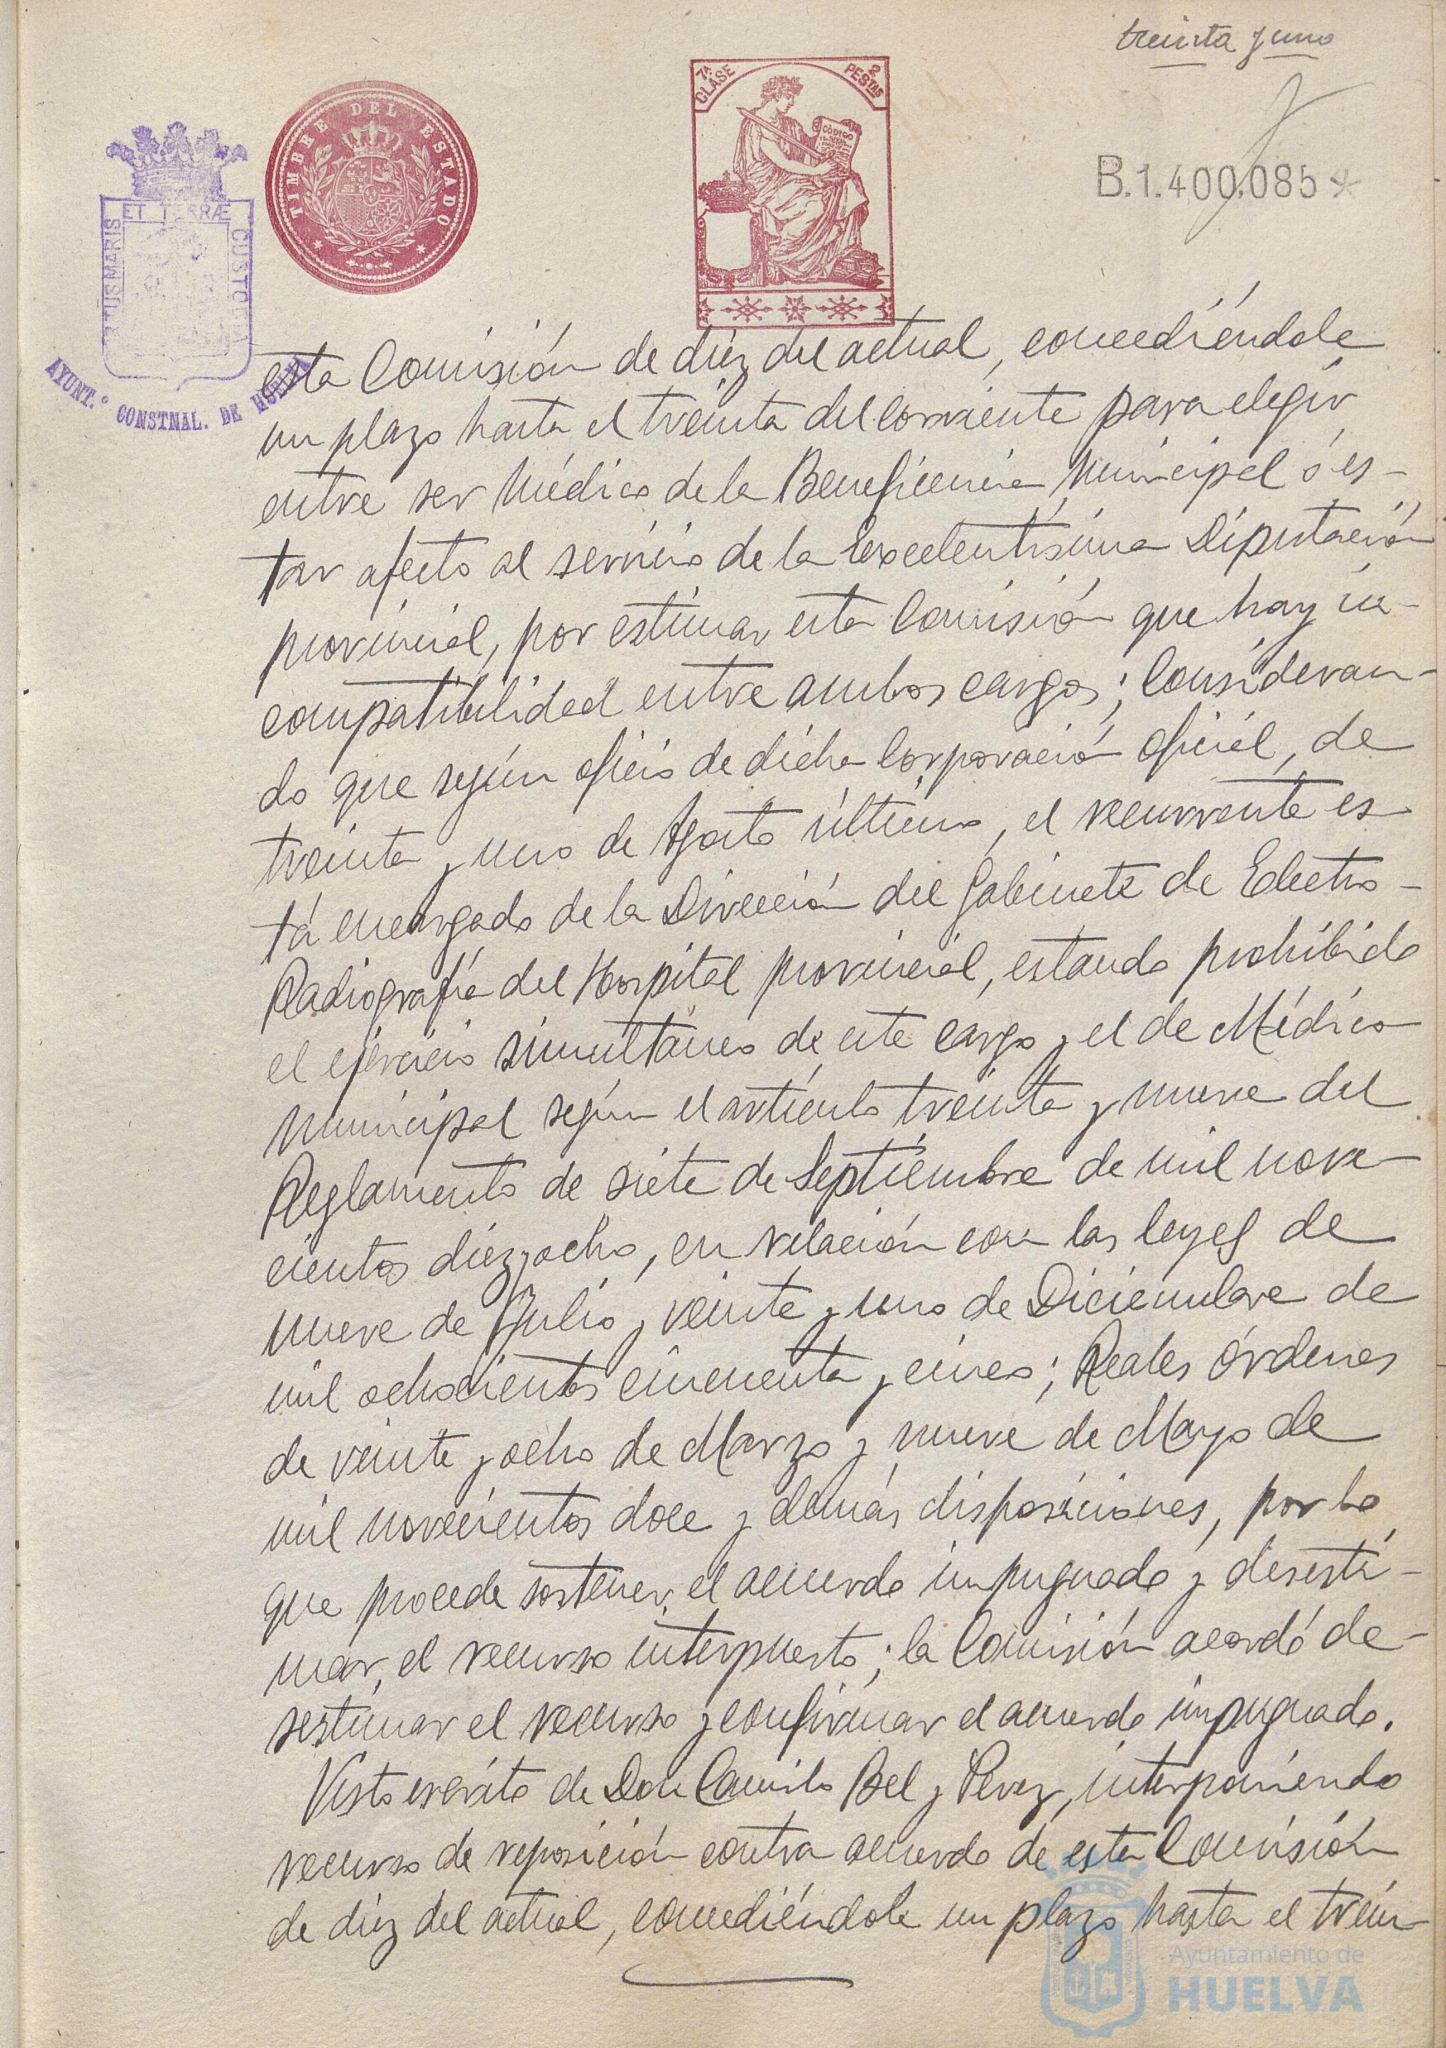 treinta y uno
7ª CLASE
2 PESTAS
CÓDIGO
TIMBRE DEL ESTADO
B.1.400.085*
PORTUS MARIS ET TERRÆ CUSTODIA
AYUNT.º CONSTNAL. DE HUELVA
esta Comisión de diez del actual, concediéndole
un plazo hasta el treinta del corriente para elegir
entre ser Médico de la Beneficencia Municipal ó es-
tar afecto al servicio de la Excelentísima Diputación
provincial, por estimar esta Comisión que hay in-
compatibilidad entre ambos cargos; Consideran-
do que según oficio de dicha Corporación oficial, de
treinta y uno de Agosto último, el recurrente es
tá encargado de la Dirección del Gabinete de Electro-
Radiografía del Hospital provincial, estando prohibido
el ejercicio simultáneo de este cargo y el de Médico
Municipal según el artículo treinta y nueve del
Reglamento de siete de Septiembre de mil nove-
cientos diez y ocho, en relación con las leyes de
nueve de Julio y veinte y uno de Diciembre de
mil ochocientos cincuenta y cinco; Reales órdenes
de veinte y ocho de Marzo y nueve de Mayo de
mil novecientos doce y demás disposiciones, por lo
que procede sostener el acuerdo impugnado y desesti-
mar, el recurso interpuesto; la Comisión acordó de-
sestimar el recurso y confirmar el acuerdo impugnado.
Visto escrito de Don Camilo Bel y Perez, interponiendo
recurso de reposición contra acuerdo de esta Comisión
de diez del actual, concediéndole un plazo hasta el trein-
Ayuntamiento de
HUELVA